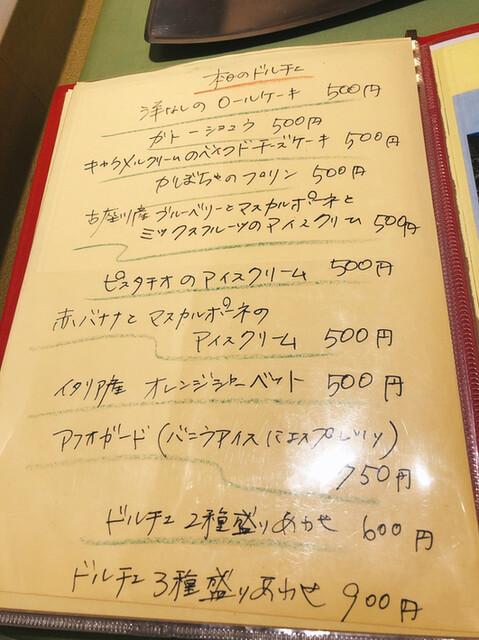 本日のドルチェ
洋なしの ロールケーキ 500円
ガトーショコラ 500円
キャラメルクリームのベイクドチーズケーキ 500円
かぼちゃのプリン 500円
古座川産ブルーベリーとマスカルポーネと
ミックスフルーツのアイスクリーム 500円
ピスタチオのアイスクリーム 500円
赤バナナと マスカルポーネの
アイスクリーム 500円
イタリア産 オレンジシャーベット 500円
アフォガード (バニラアイスにエスプレッソ)
750円
ドルチェ 2種盛りあわせ 600円
ドルチェ 3種盛りあわせ 900円